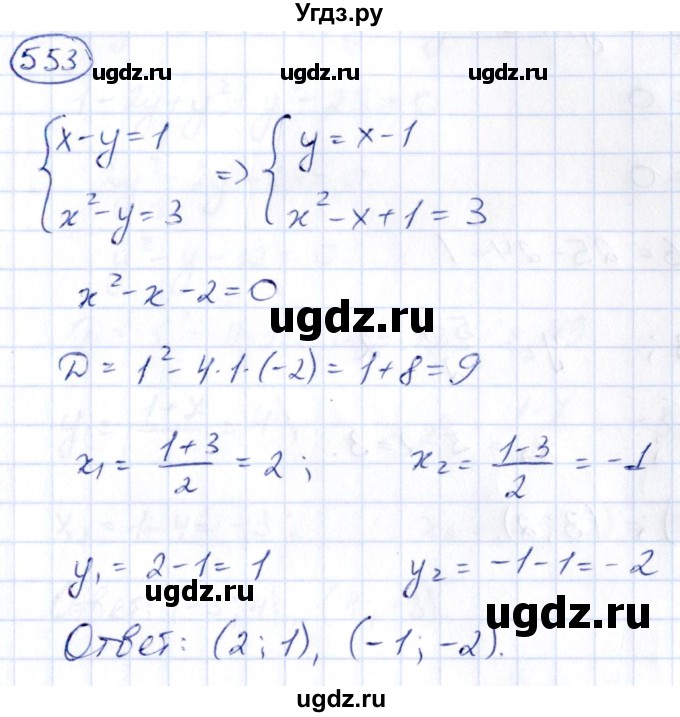 Угдз.ру
553
ugdz.ru ugdz.ru
x-y=1 y=x-1
=>
x²-y=3 x²-x+1=3
x²-x-2=0
ugdz.ru
D=1²-4·1·(-2)=1+8=9
x₁= (1+3)/2 =2; x₂= (1-3)/2 =-1
y₁=2-1=1 y₂=-1-1=-2
ugdz.ru ugdz.ru
Ответ: (2;1), (-1;-2).
ugdz.ru